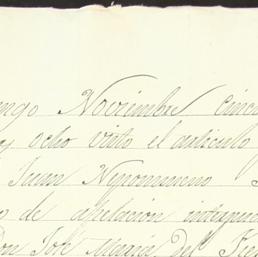 ngo Noviembre cinco
ocho visto el articulo
Juan Nepomuceno
o de apelacion interpue
Don José Maria del